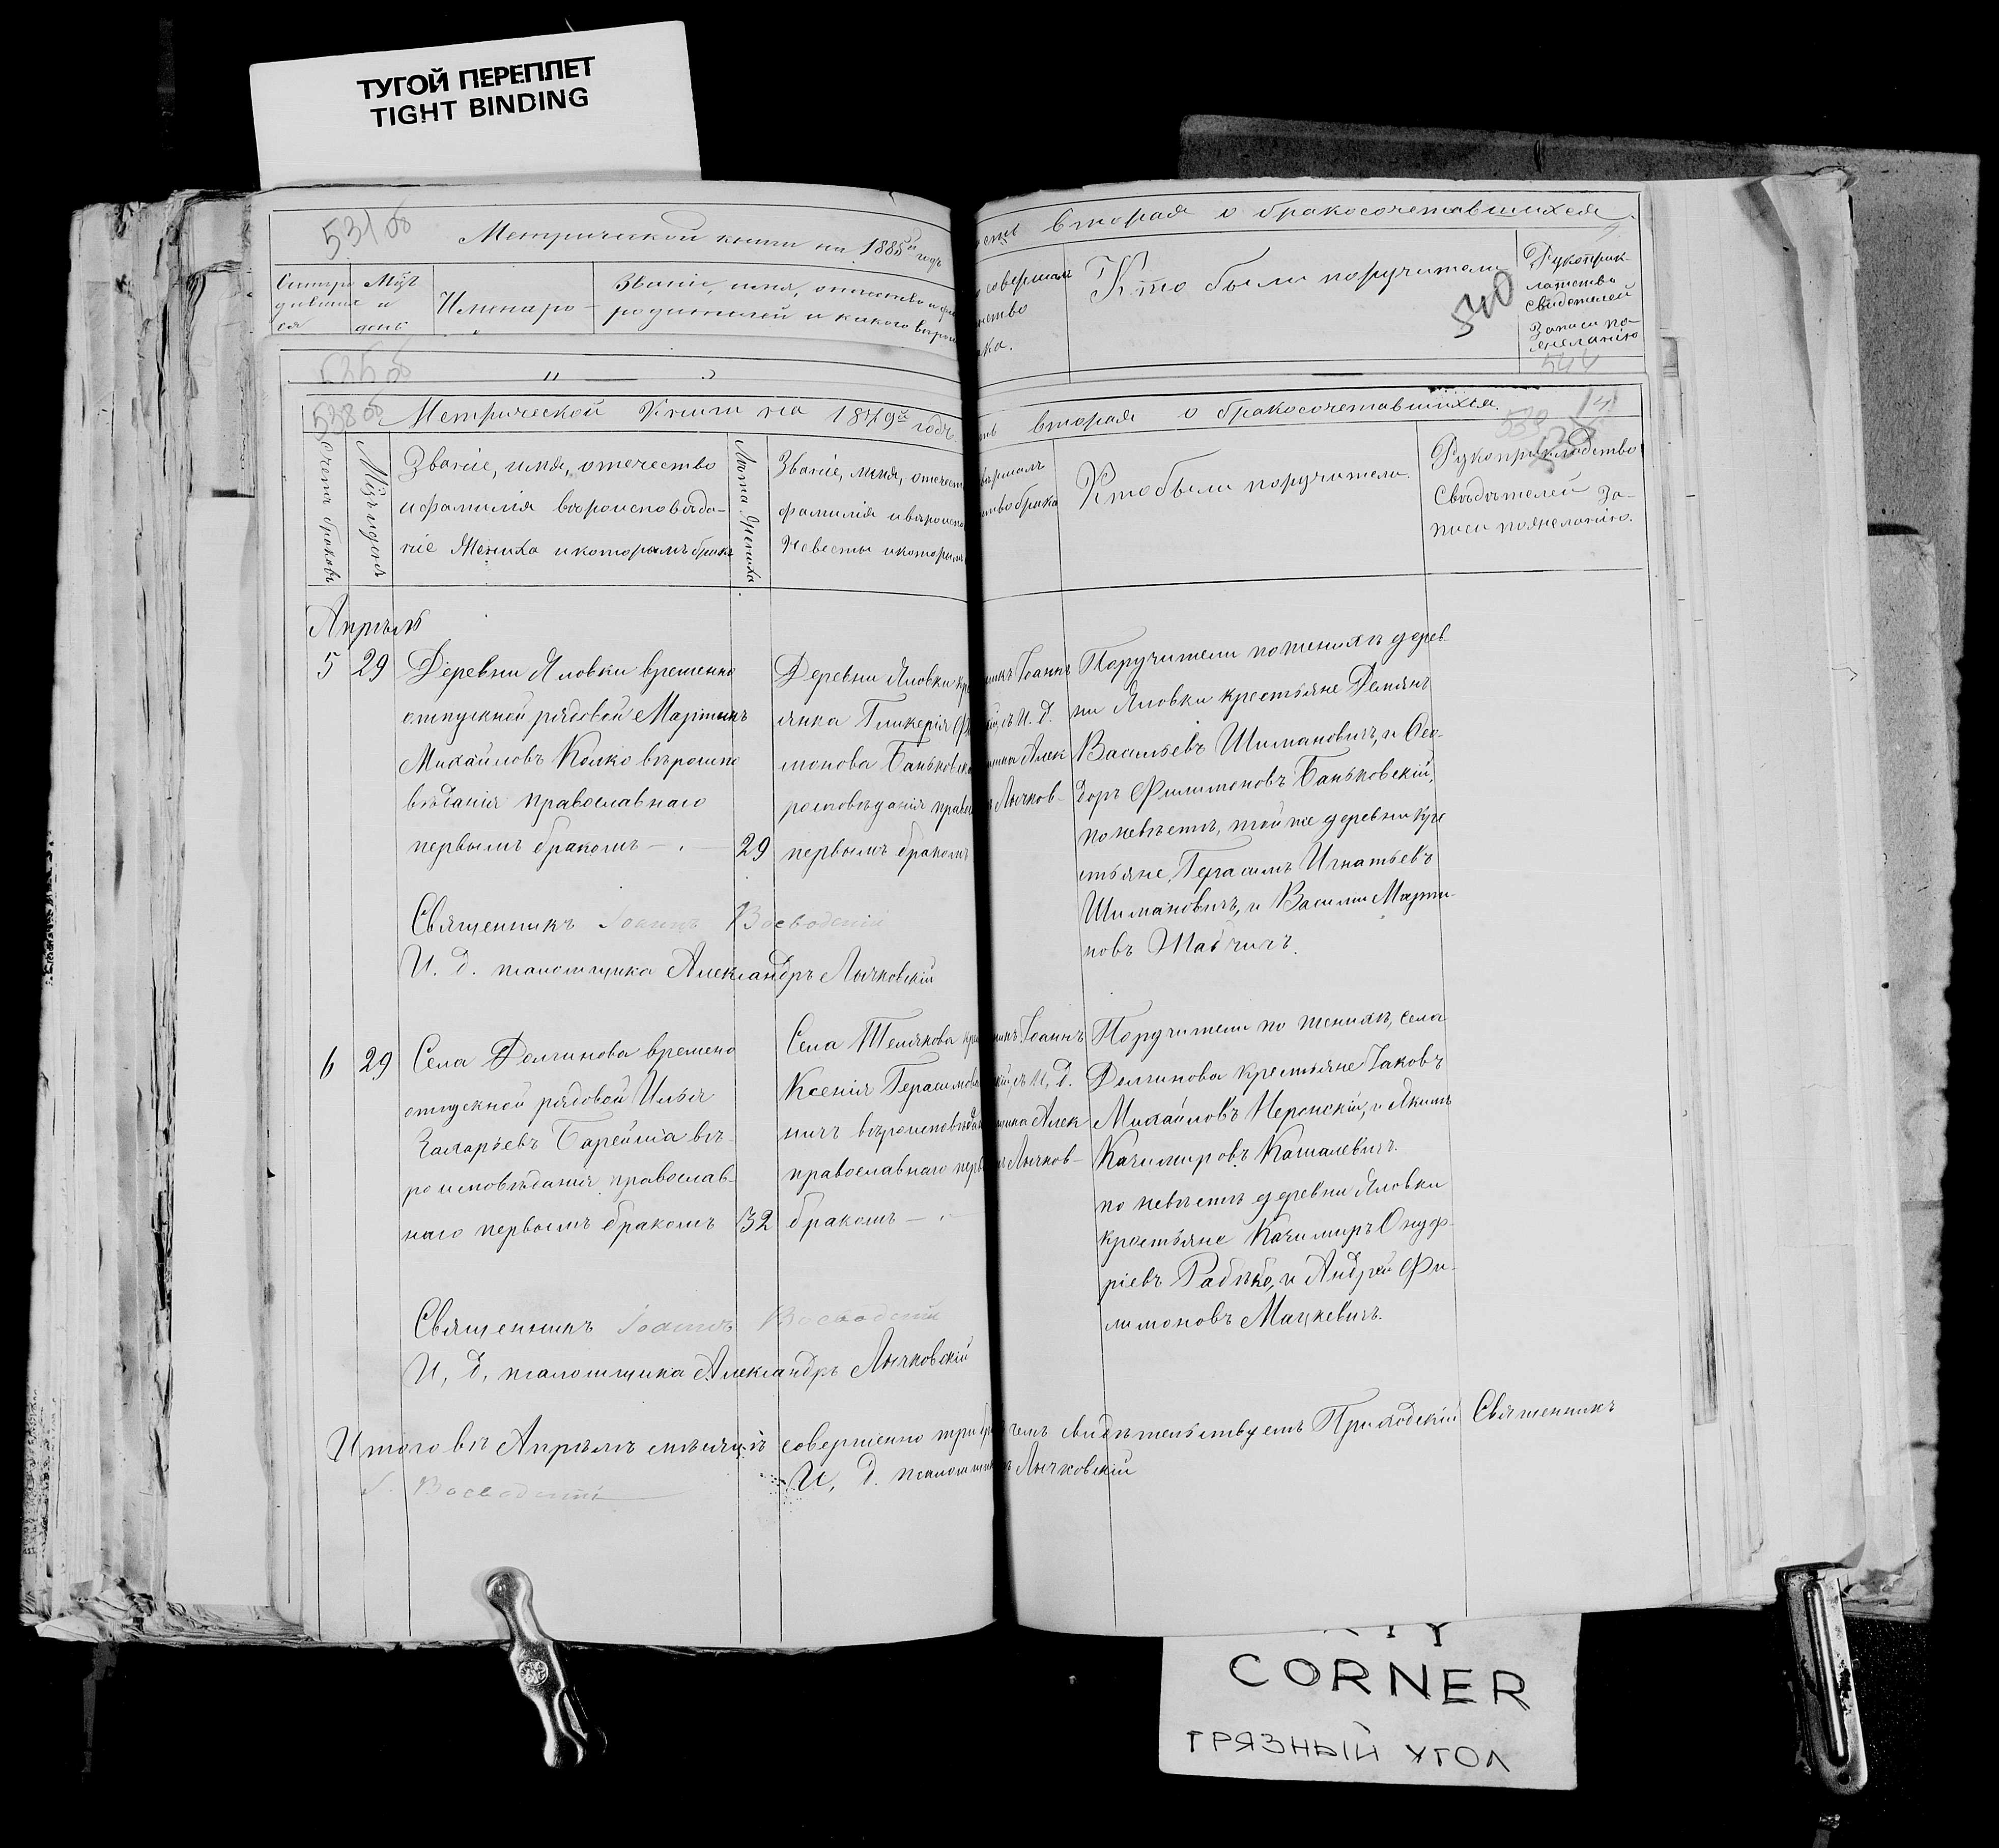 ТУГОЙ ПЕРЕПЛЕТ
TIGHT BINDING
531 об
Метрической книги на 1885й годъ
Мѣц
и
день
Имена ро-
Званіе, имя, отчество и
родителей и какого
вторая о бракосочетавшихся.
совершал
Кто были поручители
540
Рукоприк-
латство
свидетелей
записи по-
желанію
544
538 об
Метрической Книги на 1879й годъ.
вторая о бракосочетавшихся.
Счетъ браковъ
Мѣцъ и день
Званіе, имя, отечество
и фамилія вѣроисповѣда-
ніе Жениха и которымъ бракъ
Лѣта Жениха
Званіе, имя, отечест
фамилія и вѣроиспо
Невесты и которым
вершалъ
ство брака
Кто были поручители.
Рукоприкладство
Свѣдѣтелей За-
писи по желанію.
Апрѣль
5
29
Деревни Яловки временно
отпускной рядовой Мартинъ
Михайловъ Колко вѣроиспо
вѣданія православнаго
первымъ бракомъ
29
Деревни Яловки кр
янка Гликерія Фи
монова Баньковска
роисповѣданія право
первымъ бракомъ
никъ Іоаннъ
й, съ И. д.
щика Алек
Лычков-
Поручители по женихѣ дерев-
ни Яловки крестьяне Демянъ
Васильевъ Шимановичъ, и Ѳео-
доръ Филимоновъ Баньковскій,
по невѣстѣ, той же деревни кре
стьяне, Герасимъ Игнатьевъ
Шимановичъ, и Василій Марти-
новъ
Священникъ Іоаннъ Воеводскій
И. д. псаломщика Александръ Лычковскій
6
29
Села Долгинова времено
отпускной рядовой Илья
Захарьевъ Барейша вѣ-
роисповѣданія православ-
наго первымъ бракомъ
32
Села Телякова кр
Ксенія Герасимова
ничъ вѣроисповѣдан
православнаго перв
бракомъ
никъ Іоаннъ
ій, съ И, д.
щика Алек
Лычков-
Поручители по женихѣ, села
Долгинова крестьяне Іаковъ
Михайловъ Неронскій, и Якимъ
Казимировъ Кашалевичъ.
по невѣстѣ деревни Яловки
крестьяне Казимиръ Онуф-
ріевъ Рабѣко, и Андрей Фи-
лимоновъ Мацкевичъ.
Священникъ Іоаннъ Воеводскій
И, д, псаломщика Александръ Лычковскій
Итого въ Апрѣлѣ мѣсяцѣ совершенно три чемъ свидѣтельствуетъ Приходскій Священникъ
І. Воеводскій
И, д. псаломщика Лычковскій
CORNER
ГРЯЗНЫЙ УГОЛ